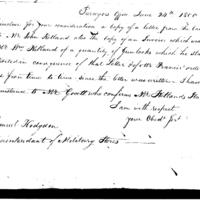 Purveyors Office June 24th 1800
for your consideration a copy of a letter from the
Mr John Holland also the copy of an Invoice which was
Mr Wm Holland of a quantity of Gunlocks which he
in consequence of that Letter
from time to time since the letter was written I have
to Mr Govett who confirms Mr Hollands
I am with respect
your Obed. Sert.
Samuel Hodgdon
Superintendant of Military Stores